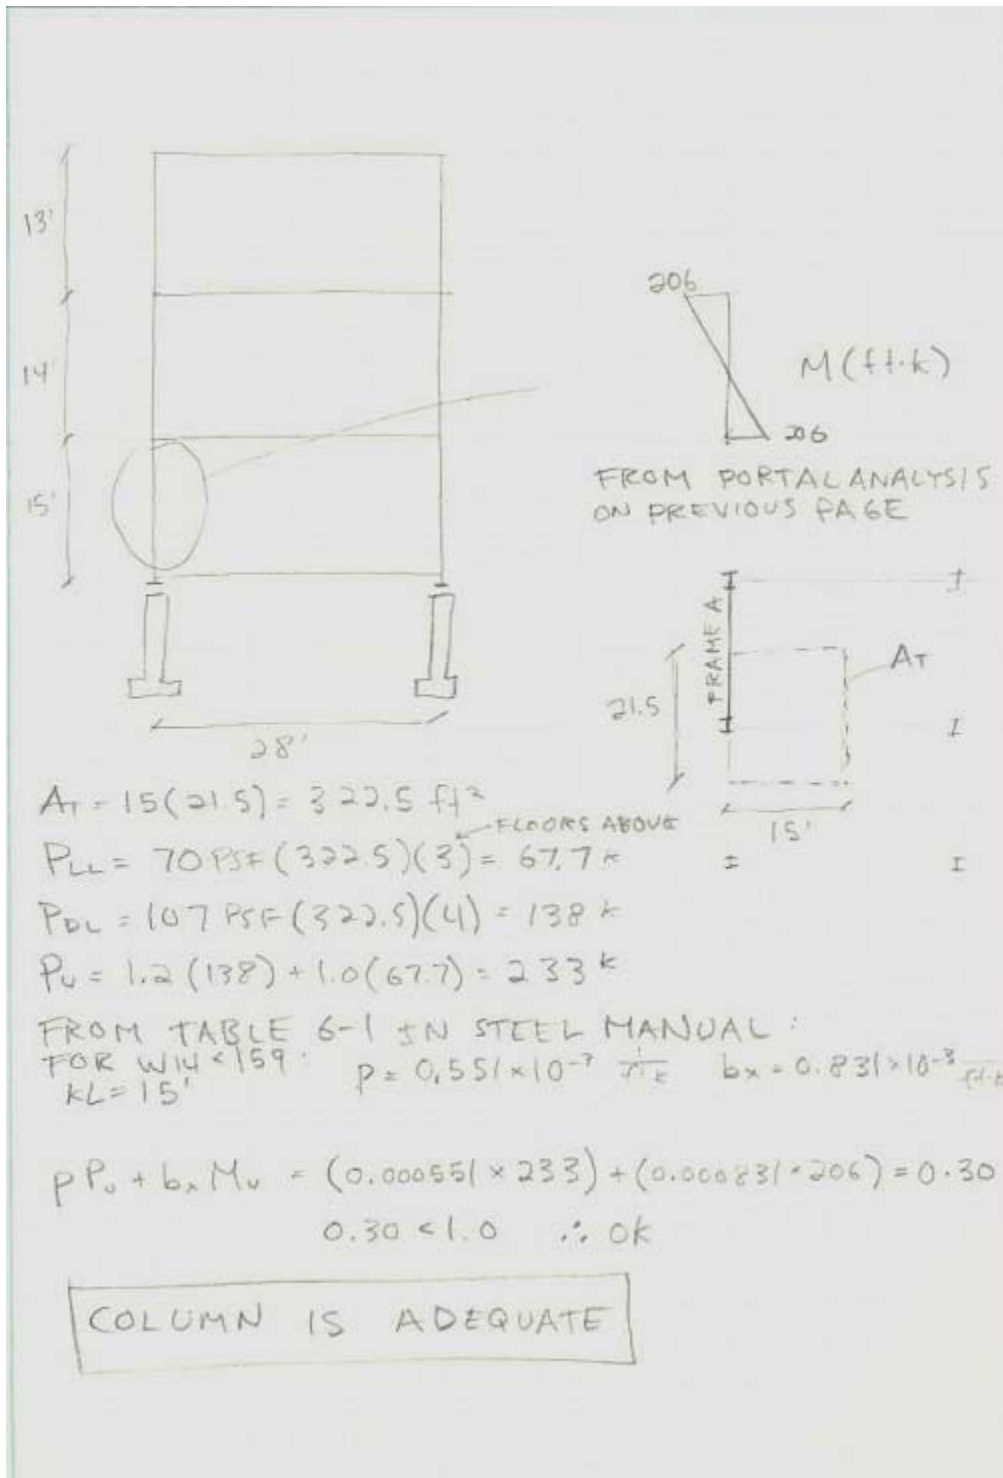 13'
14'
15'
28'
206
M(ft·k)
206
FROM PORTAL ANALYSIS
ON PREVIOUS PAGE
FRAME A
AT
21.5
15'
AT = 15(21.5) = 322.5 ft²
FLOORS ABOVE
PLL = 70 PSF(322.5)(3) = 67.7 k
PDL = 107 PSF(322.5)(4) = 138 k
PU = 1.2(138) + 1.0(67.7) = 233 k
FROM TABLE 6-1 IN STEEL MANUAL:
FOR W14×159:
KL=15'
p = 0.551×10⁻³ bx = 0.831×10⁻³
pPu + bxMu = (0.000551 × 233) + (0.000831 × 206) = 0.30
0.30 < 1.0 ∴ OK
COLUMN IS ADEQUATE